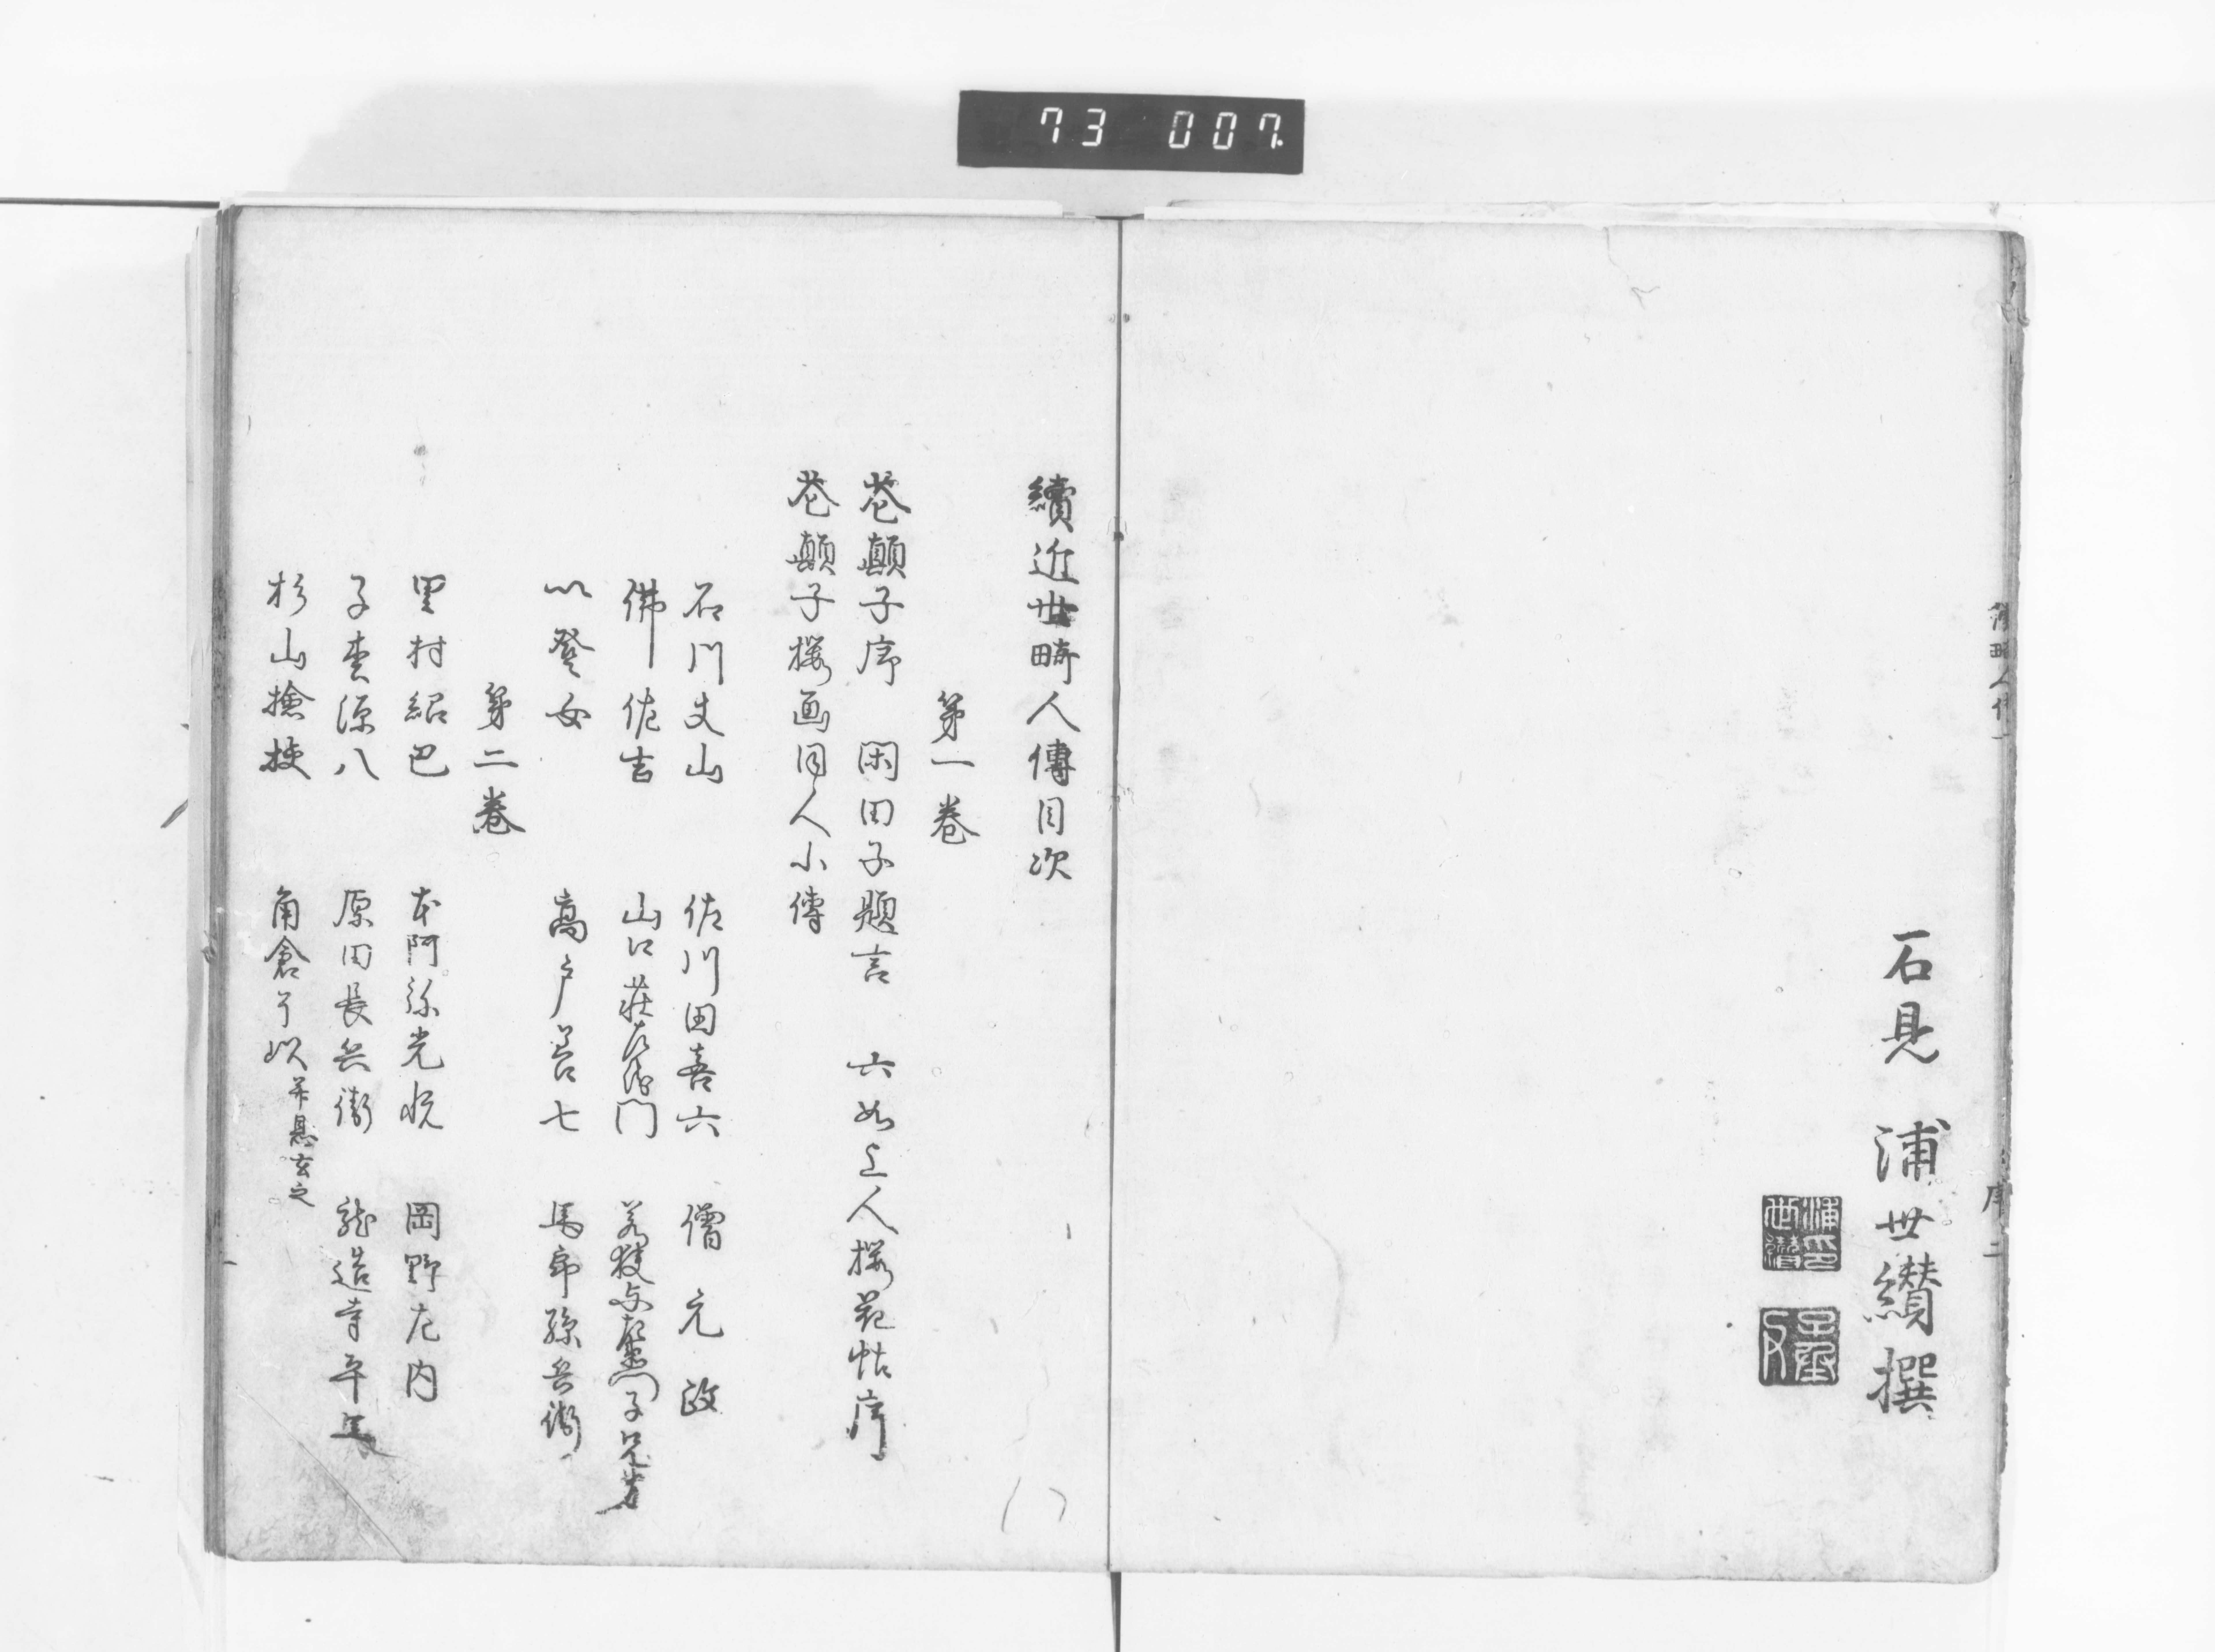 73 007
石見 浦世纘撰
續近世畸人傳目次
第一卷
花顛子序 閑田子題言 六如上人櫻花帖序
花顛子櫻画同人小傳
石川丈山 佐川田喜六 僧元政
佛佐吉 山口莊右衛門 若狹与左衛門子兄弟
以登女 高戸善七 馬郎孫兵衛
第二卷
里村紹巴 本阿弥光悦 岡野左内
子松源八 原田長兵衛 龍造寺平馬
杉山撿挍 角倉了以并息玄之